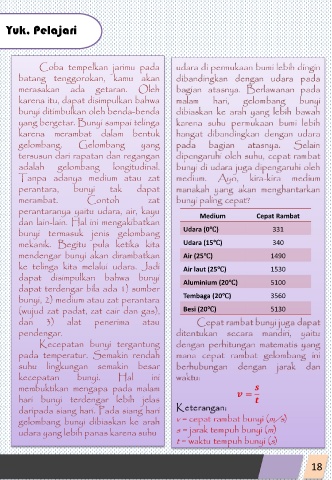 Yuk, Pelajari
Coba tempelkan jarimu pada
batang tenggorokan, kamu akan
merasakan ada getaran. Oleh
karena itu, dapat disimpulkan bahwa
bunyi ditimbulkan oleh benda-benda
yang bergetar. Bunyi sampai telinga
karena merambat dalam bentuk
gelombang. Gelombang yang
tersusun dari rapatan dan regangan
adalah gelombang longitudinal.
Tanpa adanya medium atau zat
perantara, bunyi tak dapat
merambat. Contoh zat
perantaranya yaitu udara, air, kayu
dan lain-lain. Hal ini mengakibatkan
bunyi termasuk jenis gelombang
mekanik. Begitu pula ketika kita
mendengar bunyi akan dirambatkan
ke telinga kita melalui udara. Jadi
dapat disimpulkan bahwa bunyi
dapat terdengar bila ada 1) sumber
bunyi, 2) medium atau zat perantara
(wujud zat padat, zat cair dan gas),
dan 3) alat penerima atau
pendengar.
Kecepatan bunyi tergantung
pada temperatur. Semakin rendah
suhu lingkungan semakin besar
kecepatan bunyi. Hal ini
membuktikan mengapa pada malam
hari bunyi terdengar lebih jelas
daripada siang hari. Pada siang hari
gelombang bunyi dibiaskan ke arah
udara yang lebih panas karena suhu
udara di permukaan bumi lebih dingin
dibandingkan dengan udara pada
bagian atasnya. Berlawanan pada
malam hari, gelombang bunyi
dibiaskan ke arah yang lebih bawah
karena suhu permukaan bumi lebih
hangat dibandingkan dengan udara
pada bagian atasnya. Selain
dipengaruhi oleh suhu, cepat rambat
bunyi di udara juga dipengaruhi oleh
medium. Ayo, kira-kira medium
manakah yang akan menghantarkan
bunyi paling cepat?
Medium Cepat Rambat
Udara (0°C) 331
Udara (15°C) 340
Air (25°C) 1490
Air laut (25°C) 1530
Aluminium (20°C) 5100
Tembaga (20°C) 3560
Besi (20°C) 5130
Cepat rambat bunyi juga dapat
ditentukan secara mandiri, yaitu
dengan perhitungan matematis yang
mana cepat rambat gelombang ini
berhubungan dengan jarak dan
waktu:
v = s/t
Keterangan:
v = cepat rambat bunyi (m/s)
s = jarak tempuh bunyi (m)
t = waktu tempuh bunyi (s)
18